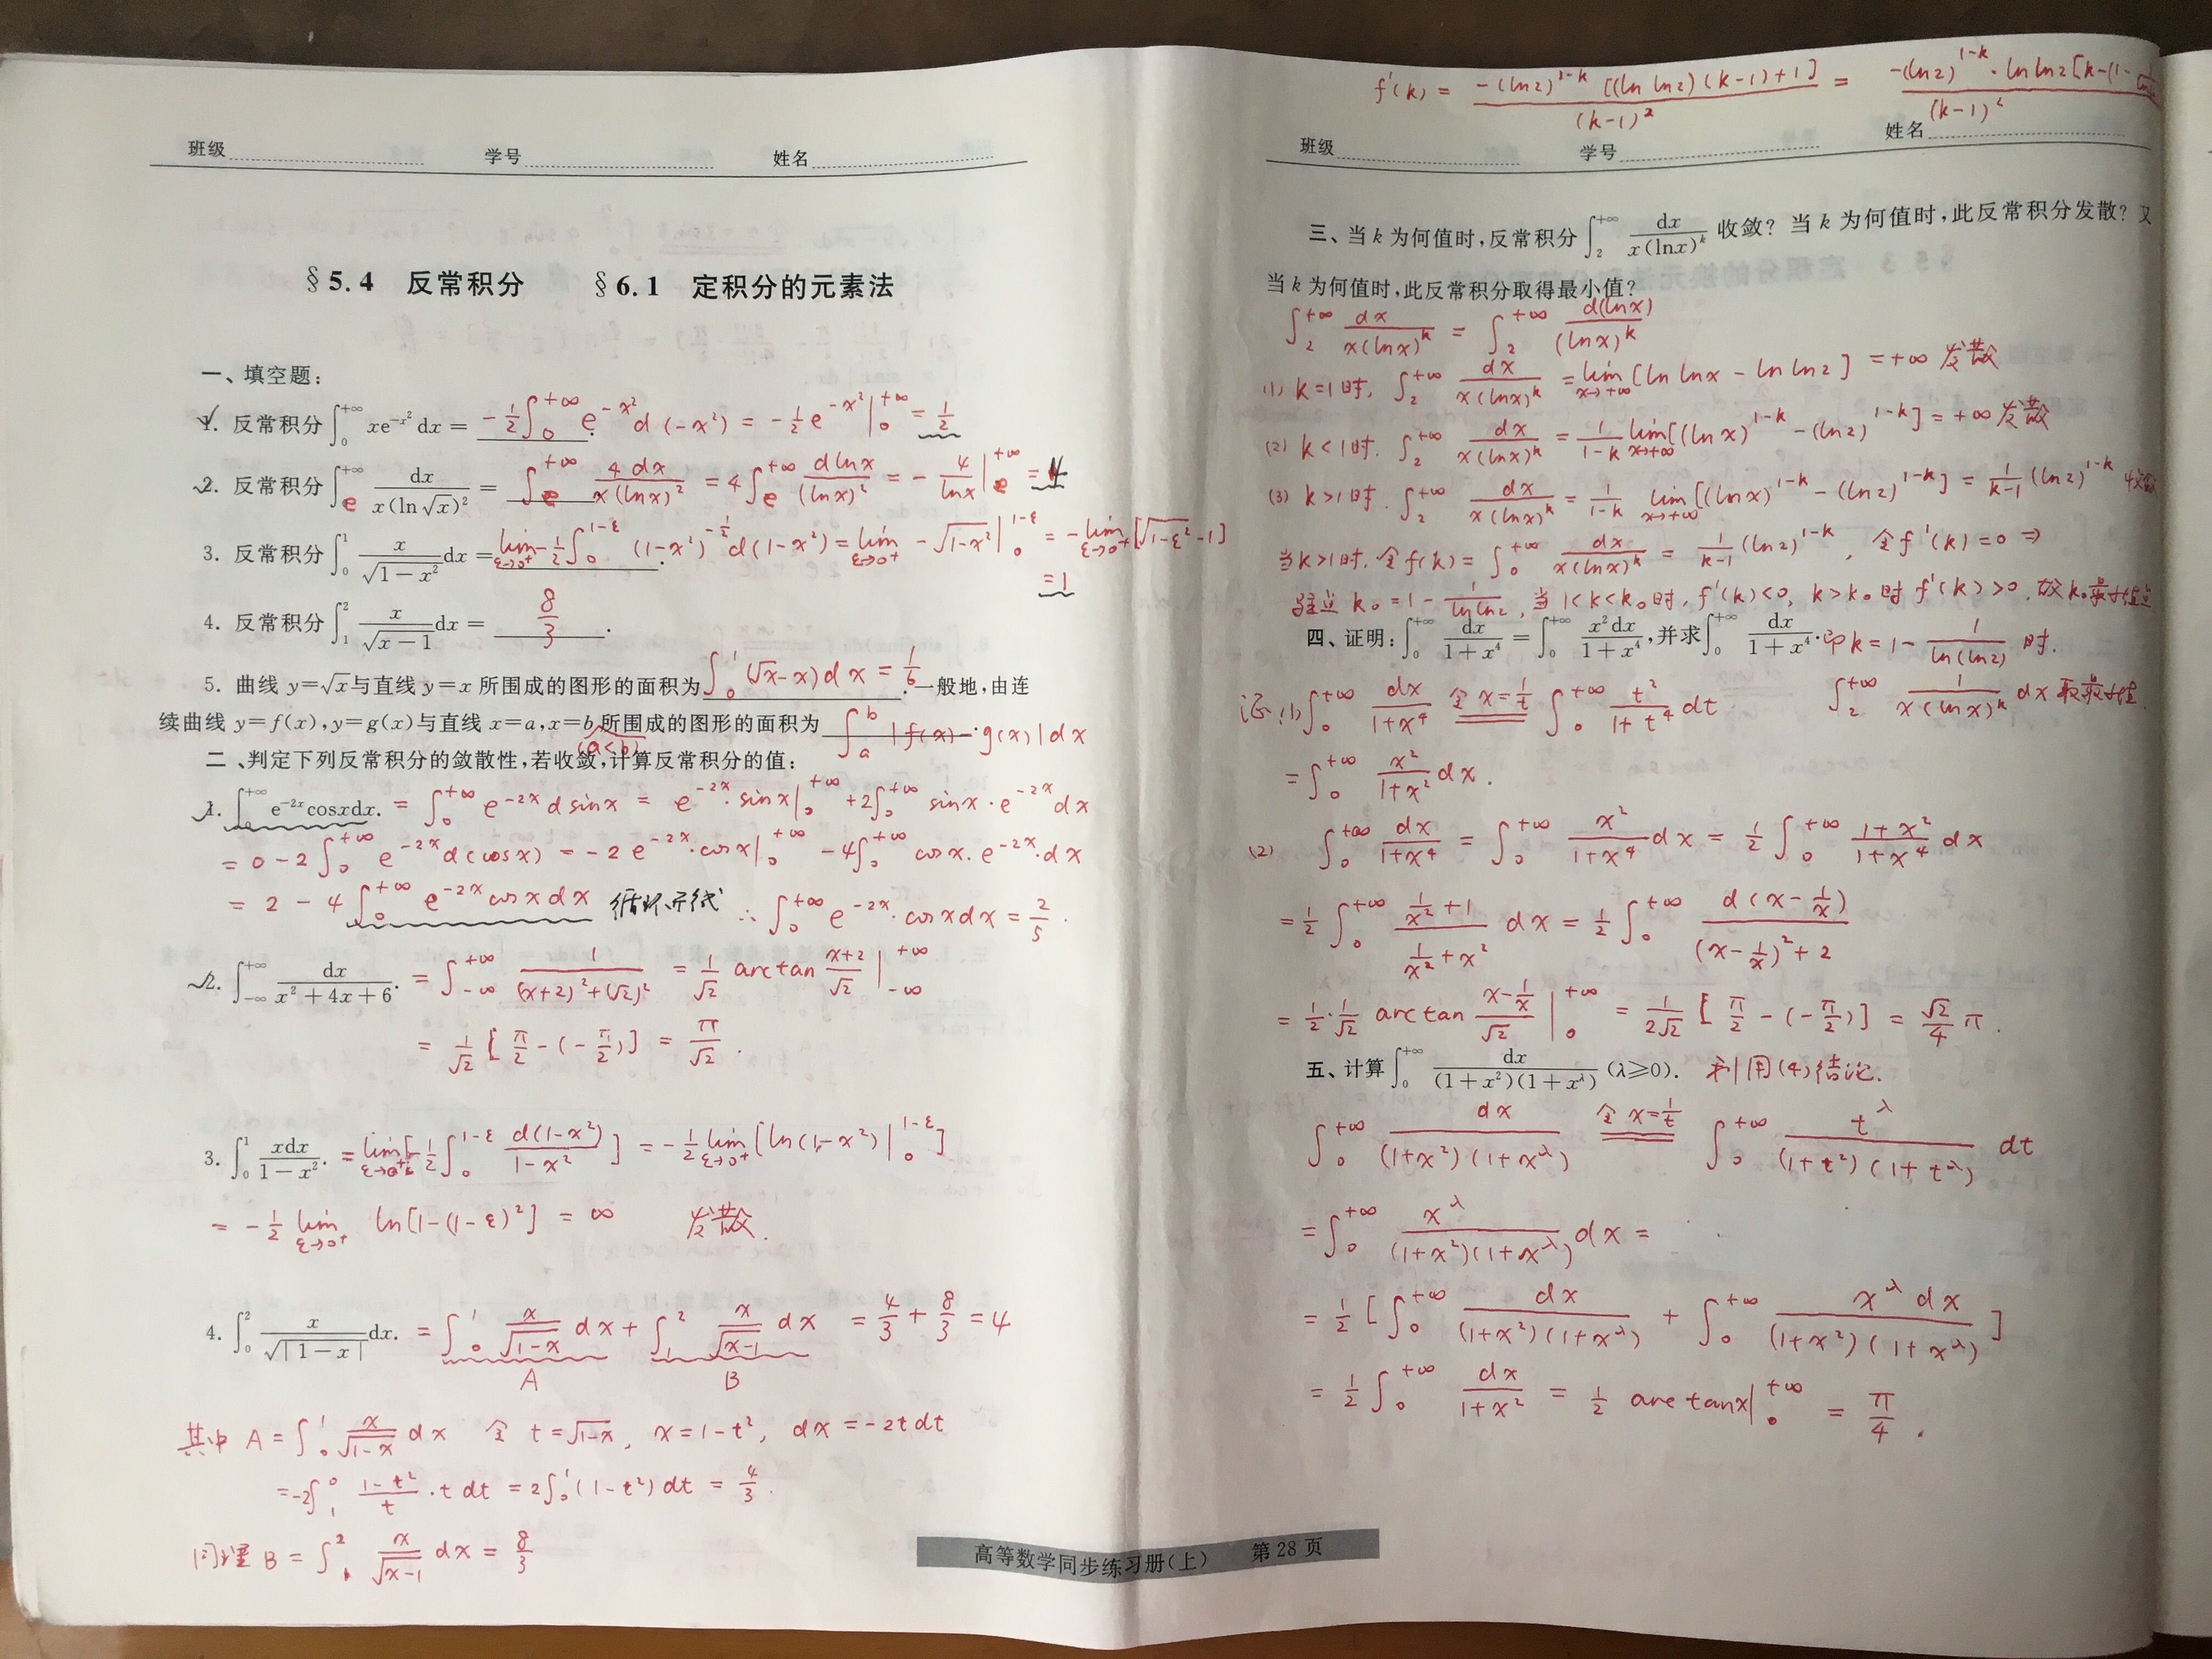 班级 学号 姓名
§5.4 反常积分 §6.1 定积分的元素法
一、填空题:
1. 反常积分∫₀^{+∞} xe^{-x²}dx = -½∫₀^{+∞} e^{-x²} d(-x²) = -½e^{-x²}|₀^{+∞} = ½
2. 反常积分∫ₑ^{+∞} dx/(x(ln√x)²) = ∫ₑ^{+∞} 4dx/(x(lnx)²) = 4∫ₑ^{+∞} dlnx/(lnx)² = -4/lnx|ₑ^{+∞} = 4
3. 反常积分∫₀¹ x/√(1-x²) dx = lim_{ε→0⁺} -½∫₀^{1-ε} (1-x²)^{-½} d(1-x²) = lim_{ε→0⁺} -√(1-x²)|₀^{1-ε} = -lim_{ε→0⁺}[√(1-ε²)-1]
=1
4. 反常积分∫₁² x/√(x-1) dx = 8/3.
5. 曲线 y=√x与直线 y=x 所围成的图形的面积为∫₀¹(√x-x)dx = 1/6.一般地,由连
续曲线 y=f(x),y=g(x)与直线 x=a,x=b所围成的图形的面积为∫ₐᵇ|f(x)-g(x)|dx.
(a<b)
二、判定下列反常积分的敛散性,若收敛,计算反常积分的值:
1. ∫₀^{+∞} e^{-2x}cosxdx. = ∫₀^{+∞} e^{-2x} dsinx = e^{-2x}·sinx|₀^{+∞} +2∫₀^{+∞} sinx·e^{-2x}dx
= 0-2∫₀^{+∞} e^{-2x}d(cosx) = -2e^{-2x}·cosx|₀^{+∞} -4∫₀^{+∞} cosx·e^{-2x}·dx
= 2-4∫₀^{+∞} e^{-2x}cosxdx 循环 ∴∫₀^{+∞} e^{-2x}·cosxdx = 2/5.
2. ∫_{-∞}^{+∞} dx/(x²+4x+6). = ∫_{-∞}^{+∞} 1/((x+2)²+(√2)²) = 1/√2 arctan (x+2)/√2|_{-∞}^{+∞}
= 1/√2 [π/2-(-π/2)] = π/√2.
3. ∫₀¹ xdx/(1-x²). = lim_{ε→0⁺}[-½∫₀^{1-ε} d(1-x²)/(1-x²)] = -½ lim_{ε→0⁺}[ln(1-x²)|₀^{1-ε}]
= -½ lim_{ε→0⁺} ln[1-(1-ε)²] = ∞ 发散.
4. ∫₀² x/√|1-x| dx. = ∫₀¹ x/√(1-x) dx + ∫₁² x/√(x-1) dx = 4/3+8/3 = 4
A B
其中 A = ∫₀¹ x/√(1-x) dx 令 t=√(1-x), x=1-t², dx=-2tdt
= -2∫₁⁰ (1-t²)/t·t dt = 2∫₀¹(1-t²)dt = 4/3.
同理 B = ∫₁² x/√(x-1) dx = 8/3
f'(k) = -(ln2)^{1-k}[(ln ln2)(k-1)+1]/(k-1)² = -(ln2)^{1-k}·ln ln2[k-(1-
(k-1)²
班级 学号 姓名
三、当 k 为何值时,反常积分∫₂^{+∞} dx/(x(lnx)^k) 收敛? 当 k 为何值时,此反常积分发散? 又
当 k 为何值时,此反常积分取得最小值?
∫₂^{+∞} dx/(x(lnx)^k) = ∫₂^{+∞} d(lnx)/(lnx)^k
(1) k=1时, ∫₂^{+∞} dx/(x(lnx)^k) = lim_{x→+∞}[ln lnx - ln ln2] = +∞ 发散
(2) k<1时. ∫₂^{+∞} dx/(x(lnx)^k) = 1/(1-k) lim_{x→+∞}[(lnx)^{1-k} - (ln2)^{1-k}] = +∞ 发散
(3) k>1时. ∫₂^{+∞} dx/(x(lnx)^k) = 1/(1-k) lim_{x→+∞}[(lnx)^{1-k} - (ln2)^{1-k}] = 1/(k-1) (ln2)^{1-k} 收敛
当k>1时,令f(k) = ∫₀^{+∞} dx/(x(lnx)^k) = 1/(k-1) (ln2)^{1-k}, 令f'(k)=0 ⇒
驻点 k₀=1-1/(lnln2), 当1<k<k₀时, f'(k)<0, k>k₀时 f'(k)>0. 故k₀最小值点
四、证明:∫₀^{+∞} dx/(1+x⁴) = ∫₀^{+∞} x²dx/(1+x⁴),并求∫₀^{+∞} dx/(1+x⁴). 即k=1-1/(ln(ln2)) 时.
∫₂^{+∞} 1/(x(lnx)^k) dx 取最小值.
证:(1)∫₀^{+∞} dx/(1+x⁴) 令x=1/t = ∫₀^{+∞} t²/(1+t⁴) dt
= ∫₀^{+∞} x²/(1+x²) dx.
(2) ∫₀^{+∞} dx/(1+x⁴) = ∫₀^{+∞} x²/(1+x⁴) dx = ½∫₀^{+∞} (1+x²)/(1+x⁴) dx
= ½∫₀^{+∞} (1/x²+1)/(1/x²+x²) dx = ½∫₀^{+∞} d(x-1/x)/((x-1/x)²+2)
= ½·1/√2 arctan (x-1/x)/√2|₀^{+∞} = 1/(2√2) [π/2-(-π/2)] = √2/4 π.
五、计算∫₀^{+∞} dx/((1+x²)(1+x^λ)) (λ≥0). 利用(4)结论.
∫₀^{+∞} dx/((1+x²)(1+x^λ)) 令x=1/t = ∫₀^{+∞} t^λ/((1+t²)(1+t^λ)) dt
= ∫₀^{+∞} x^λ/((1+x²)(1+x^λ)) dx =
= ½[∫₀^{+∞} dx/((1+x²)(1+x^λ)) + ∫₀^{+∞} x^λ dx/((1+x²)(1+x^λ))]
= ½∫₀^{+∞} dx/(1+x²) = ½ arctanx|₀^{+∞} = π/4.
高等数学同步练习册(上) 第 28 页